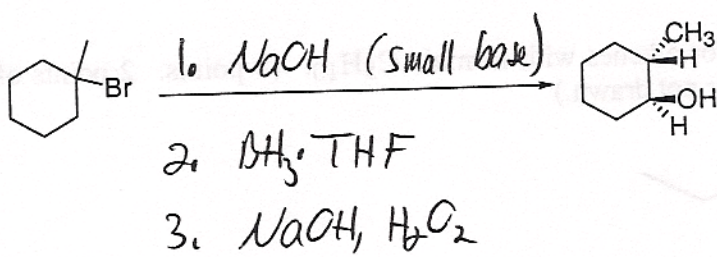 Br
1. NaOH (small base)
2. BH₃·THF
3. NaOH, H₂O₂
CH3
H
OH
H